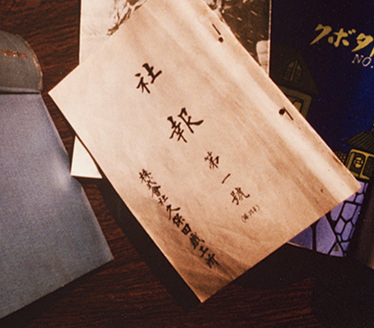 社報
第一號
株式會社久保田鉄工所
クボタ
NO.